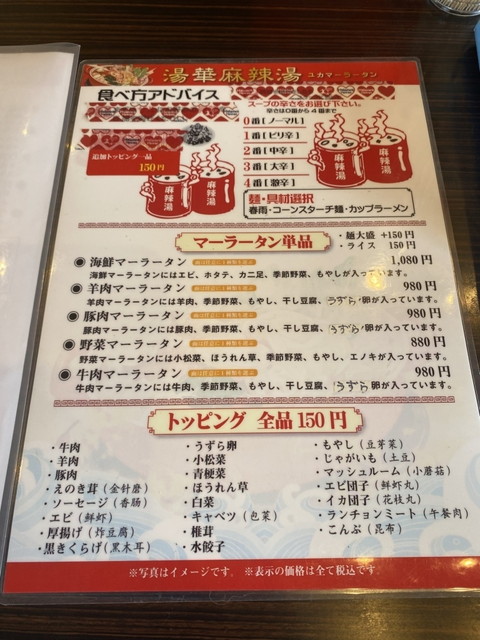 湯華麻辣湯 ユカマーラータン
食べ方アドバイス
スープの辛さをお選び下さい。
辛さは0番から4番まで
0番[ノーマル]
1番[ピリ辛]
2番[中辛]
3番[大辛]
4番[激辛]
追加トッピング一品
150円
麻辣湯
麻辣湯
麻辣湯
麺・具材選択
春雨・コーンスターチ麺・カップラーメン
マーラータン単品
・麺大盛 +150円
・ライス 150円
◉ 海鮮マーラータン 1,080円
海鮮マーラータンにはエビ、ホタテ、カニ足、季節野菜、もやしが入っています。
◉ 羊肉マーラータン 980円
羊肉マーラータンには羊肉、季節野菜、もやし、干し豆腐、うずら卵が入っています。
◉ 豚肉マーラータン 980円
豚肉マーラータンには豚肉、季節野菜、もやし、干し豆腐、うずら卵が入っています。
◉ 野菜マーラータン 880円
野菜マーラータンには小松菜、ほうれん草、季節野菜、もやし、エノキが入っています。
◉ 牛肉マーラータン 980円
牛肉マーラータンには牛肉、季節野菜、もやし、干し豆腐、うずら卵が入っています。
トッピング 全品150円
・牛肉
・羊肉
・豚肉
・えのき茸(金針磨)
・ソーセージ(香腸)
・エビ(鮮虾)
・厚揚げ(炸豆腐)
・黒きくらげ(黑木耳)
・うずら卵
・小松菜
・青梗菜
・ほうれん草
・白菜
・キャベツ(包菜)
・椎茸
・水餃子
・もやし(豆芽菜)
・じゃがいも(土豆)
・マッシュルーム(小蘑菇)
・エビ団子(鮮虾丸)
・イカ団子(花枝丸)
・ランチョンミート(午餐肉)
・こんぶ(昆布)
※写真はイメージです。 ※表示の価格は全て税込です。